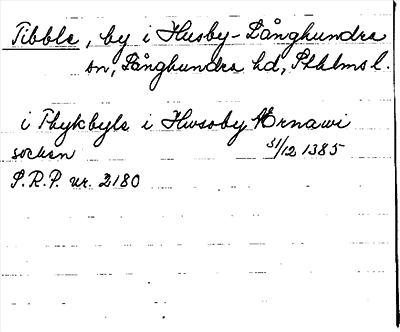 Tibble, by i Husby-Långhundra
sn, Långhundra hd, Sthlms l.
i Thykbyle i Hwsaby Ærnawi
socken 31/12 1385
S.R.P. nr. 2180